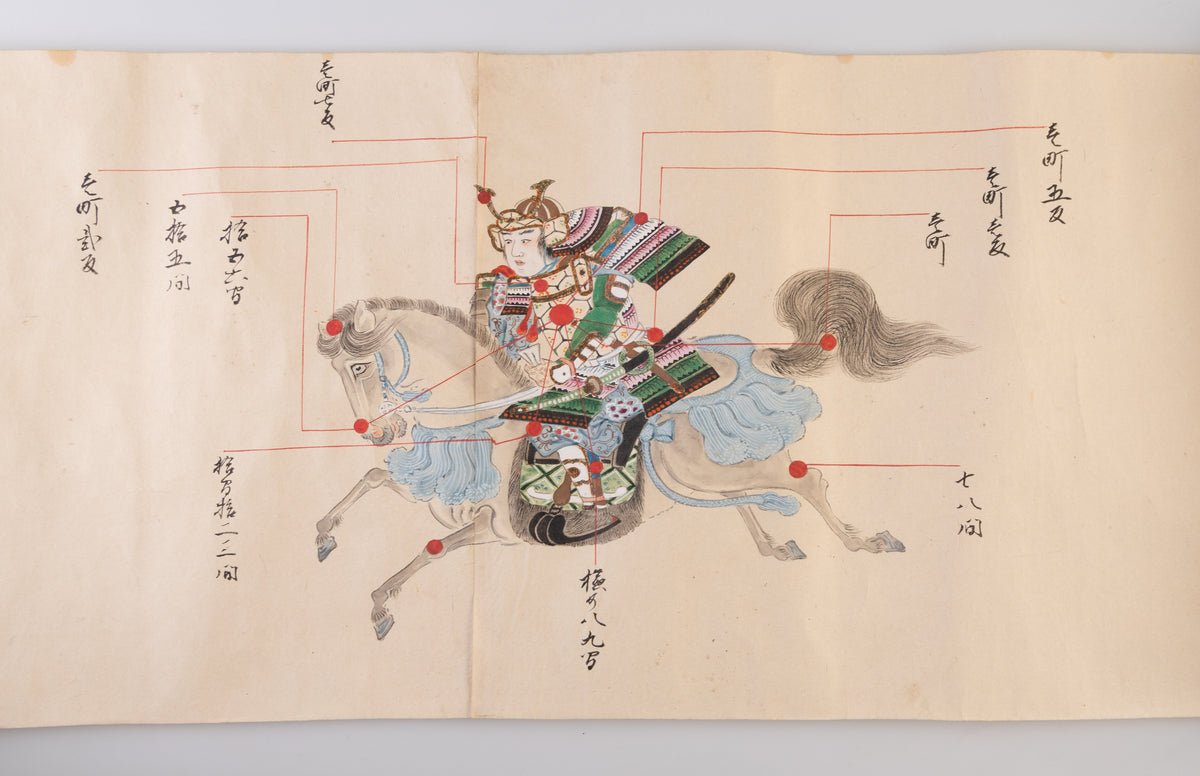 壱町五反
壱町壱反
壱町
七八間
壱町七反
横の八九間
拾五六間
拾間拾二三間
五拾五間
壱町弐反